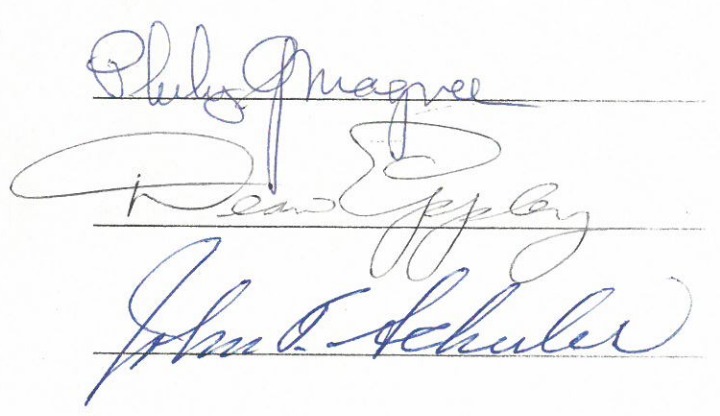 Philip J Magnee
Dean Eppley
John T. Schuler